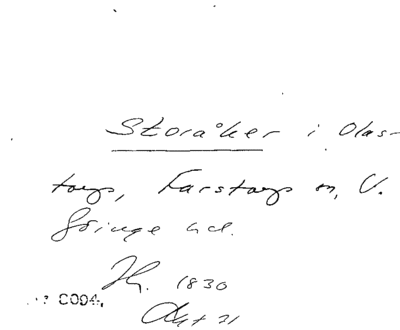 Storåker i Olas-
torp, Farstorps sn, V.
Göinge hd.
1830
C004,